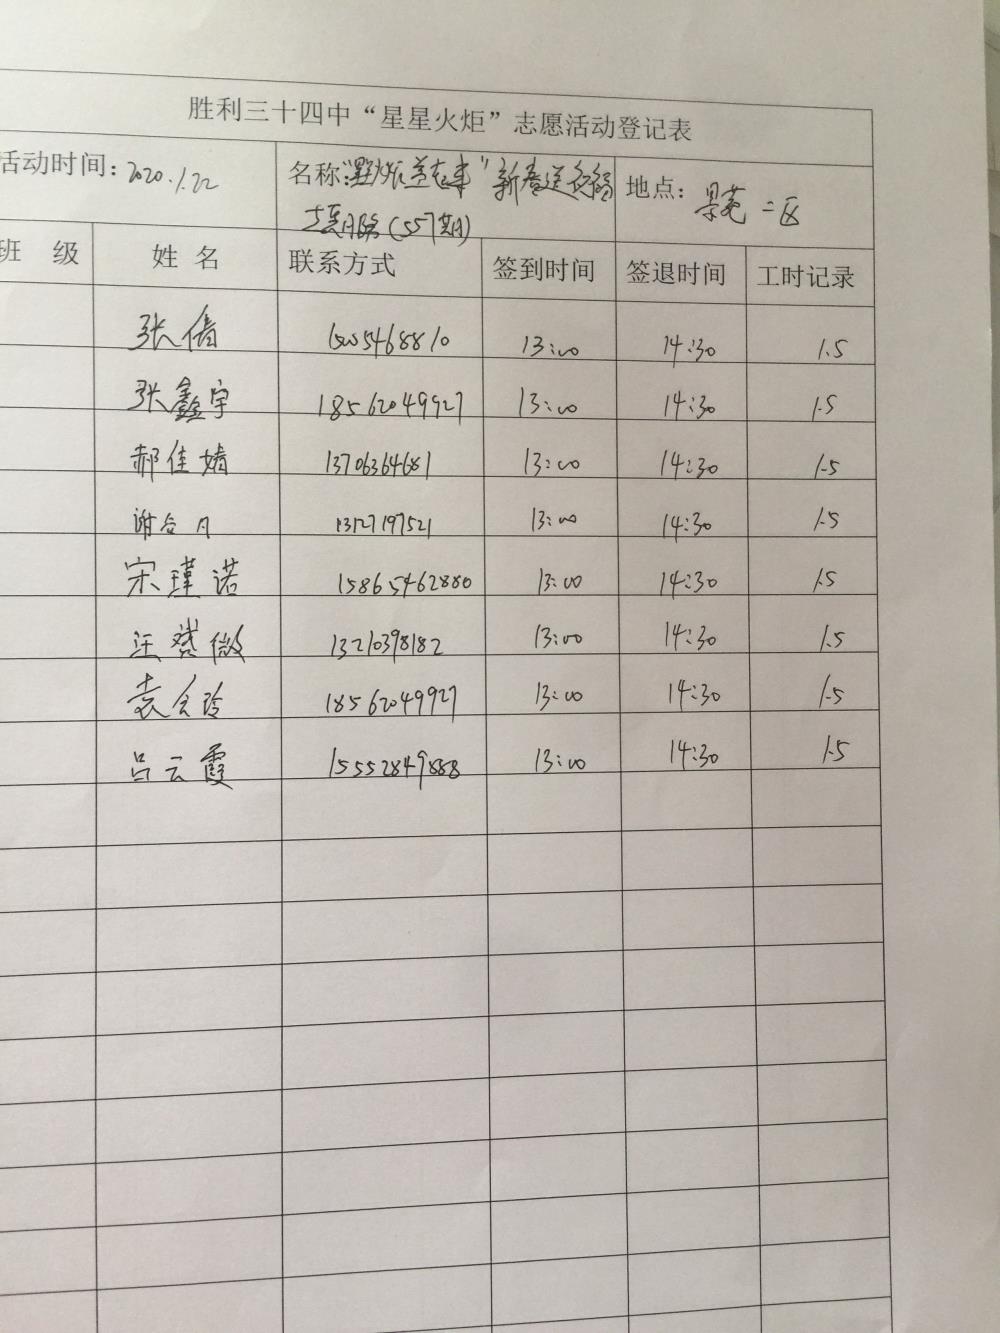 胜利三十四中“星星火炬”志愿活动登记表
活动时间：2020.1.22 名称：“星星火炬益起来”新春送祝福 地点：景苑二区
(557期)
班 级 姓 名 联系方式 签到时间 签退时间 工时记录
张倩 15054688810 13:00 14:30 1.5
张鑫宇 18562049927 13:00 14:30 1.5
郝佳婧 13706364681 13:00 14:30 1.5
谢合月 13127197521 13:00 14:30 1.5
宋瑾诺 15865462880 13:00 14:30 1.5
汪 薇 13210398182 13:00 14:30 1.5
袁会玲 18562049927 13:00 14:30 1.5
吕云霞 15552849888 13:00 14:30 1.5